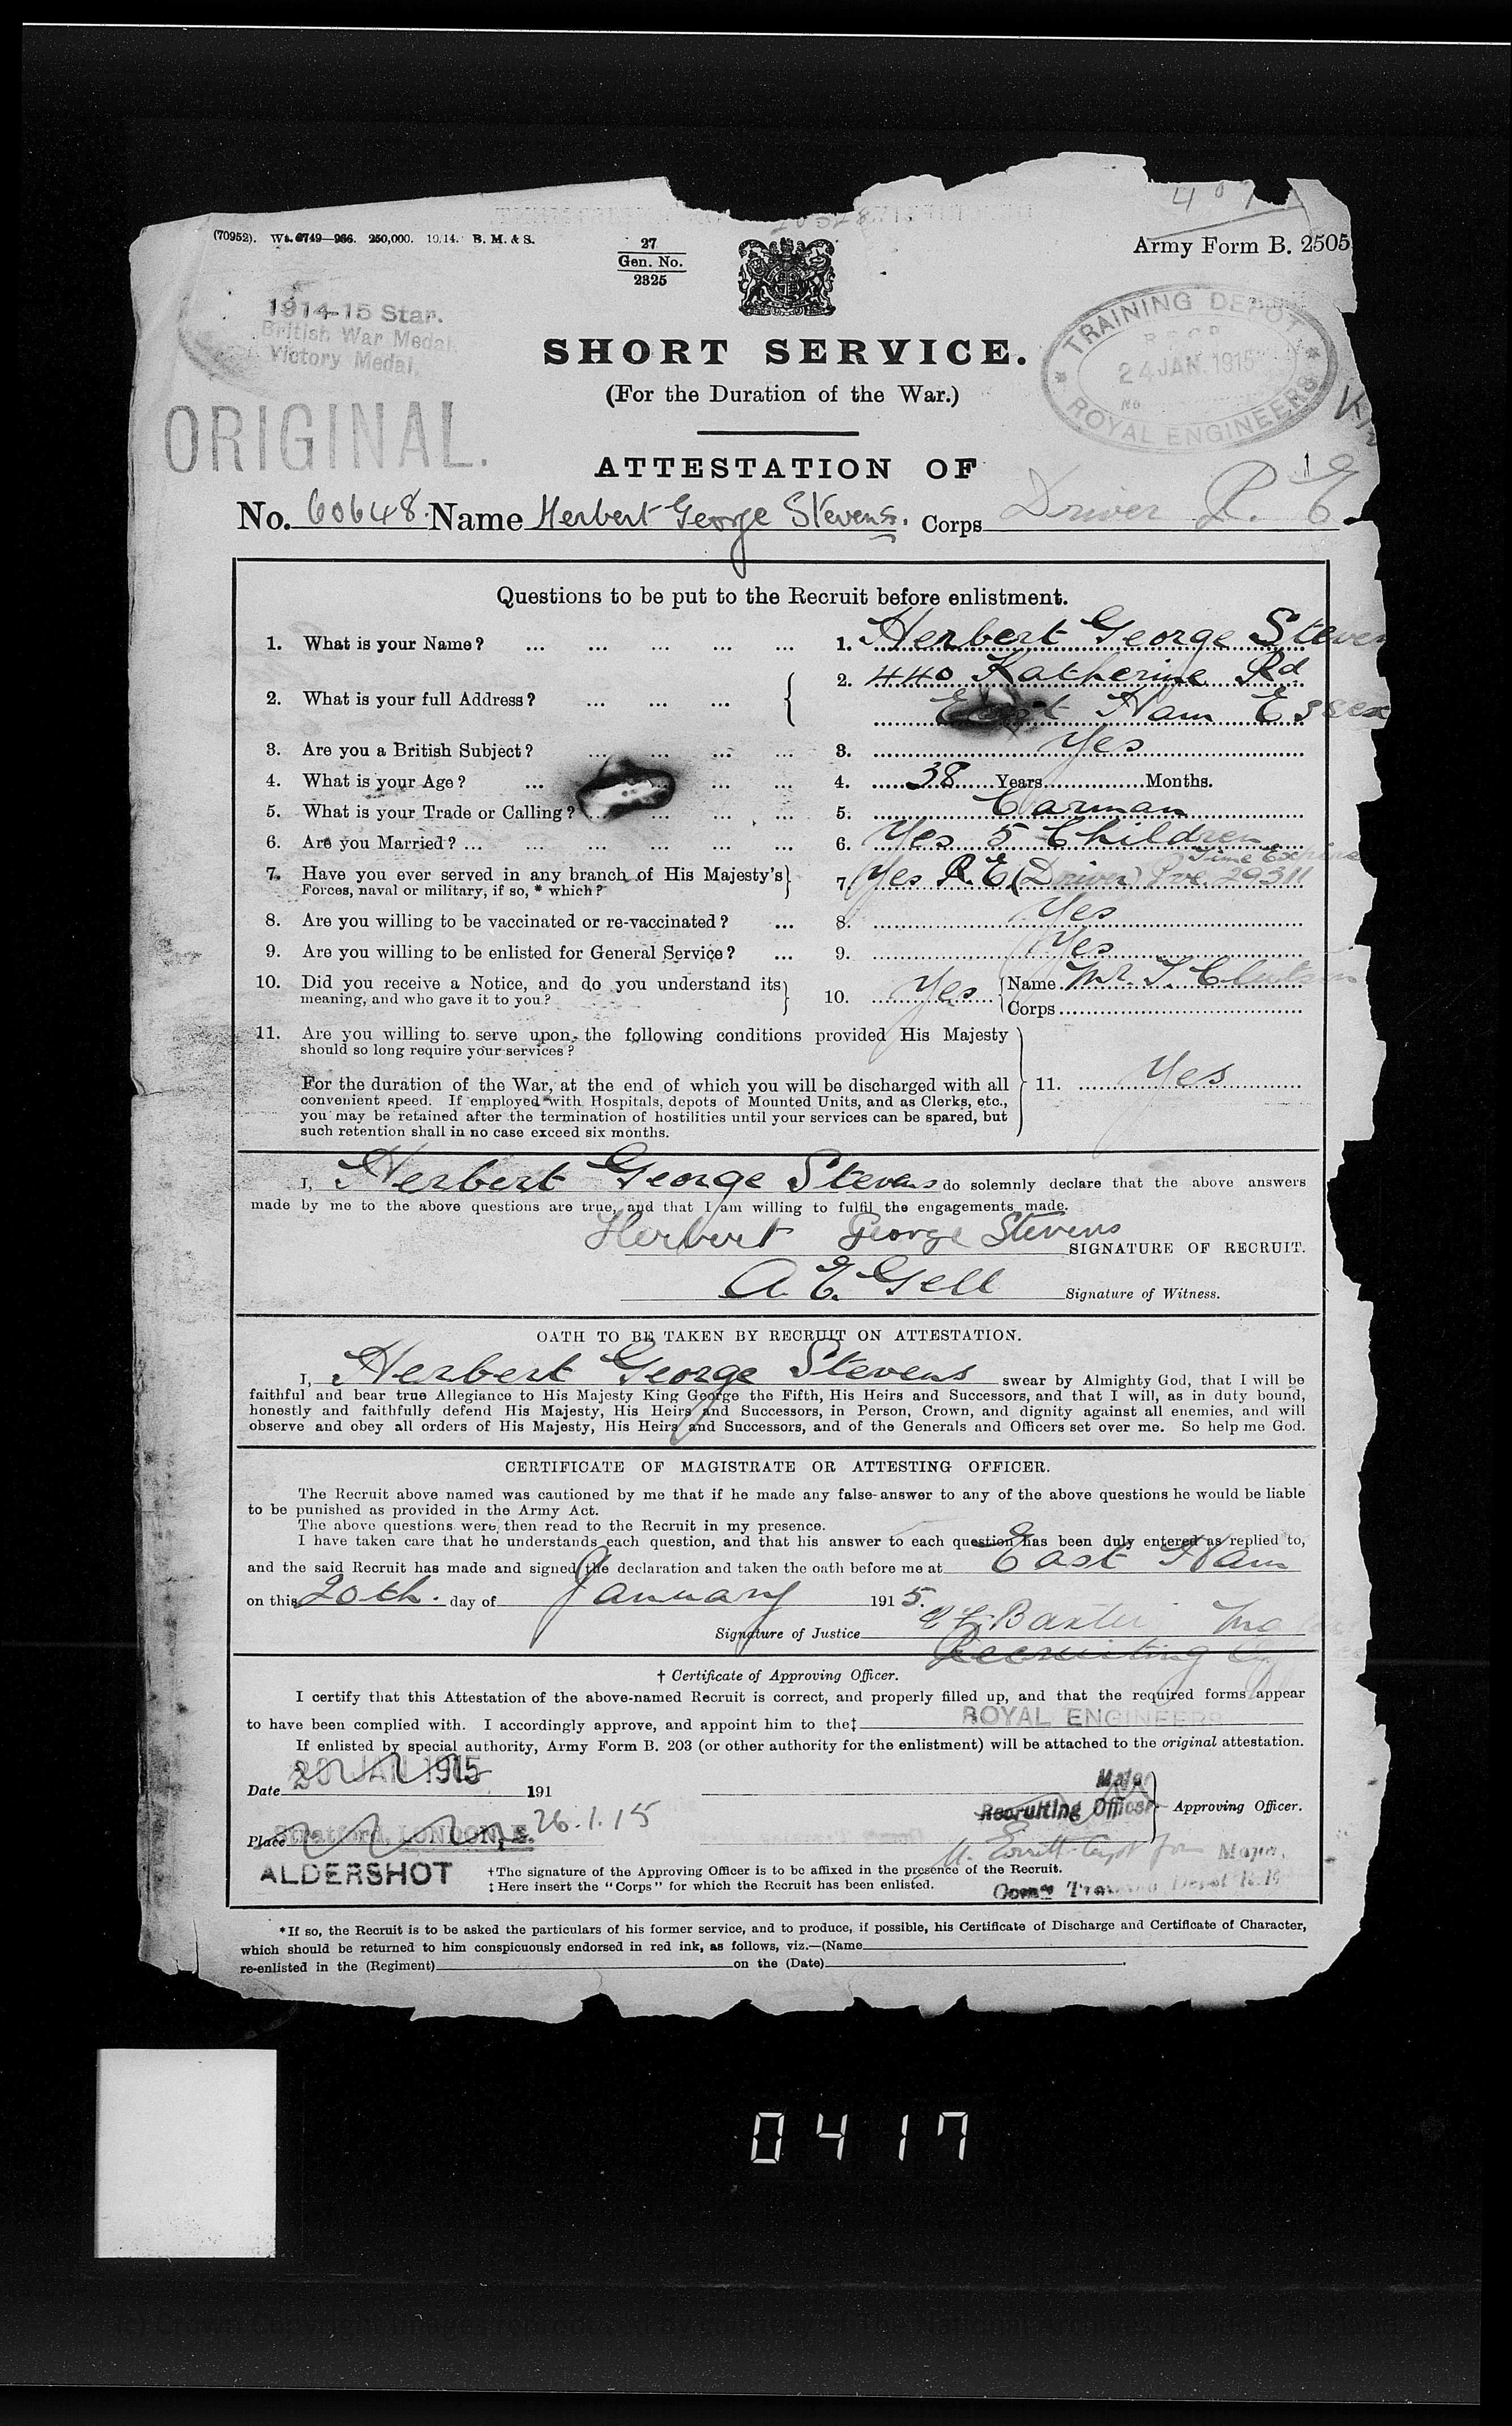 (70952). Wt. 6749—966. 250,000. 10/14. B. M. & S.
27
Gen. No.
2325
Army Form B. 2505
1914-15 Star.
British War Medal.
Victory Medal.
TRAINING DEPOT
24 JAN. 1915
No
ROYAL ENGINEERS
SHORT SERVICE.
(For the Duration of the War.)
ORIGINAL.
ATTESTATION OF
No. 60648. Name Herbert George Stevens. Corps Driver R. E
Questions to be put to the Recruit before enlistment.
1. What is your Name? ... ... ... ... ... 1. Herbert George Steven
2. What is your full Address? ... ... ... 2. 440 Katherine Rd
East Ham Essex
3. Are you a British Subject? ... ... ... ... 3. Yes
4. What is your Age? ... ... ... ... 4. 38 Years Months.
5. What is your Trade or Calling? ... ... ... ... 5. Carman
6. Are you Married? ... ... ... ... ... ... 6. Yes 5 Children
7. Have you ever served in any branch of His Majesty's Forces, naval or military, if so, * which? 7. Yes R.E (Driver) Pve. 29311 Time Expired
8. Are you willing to be vaccinated or re-vaccinated? ... 8. Yes
9. Are you willing to be enlisted for General Service? ... 9. Yes
10. Did you receive a Notice, and do you understand its meaning, and who gave it to you? 10. Yes Name Mr. T.
Corps
11. Are you willing to serve upon the following conditions provided His Majesty
should so long require your services?
For the duration of the War, at the end of which you will be discharged with all 11. Yes
convenient speed. If employed with Hospitals, depots of Mounted Units, and as Clerks, etc.,
you may be retained after the termination of hostilities until your services can be spared, but
such retention shall in no case exceed six months.
I, Herbert George Stevens do solemnly declare that the above answers
made by me to the above questions are true, and that I am willing to fulfil the engagements made.
Herbert George Stevens SIGNATURE OF RECRUIT.
A. E. Gell Signature of Witness.
OATH TO BE TAKEN BY RECRUIT ON ATTESTATION.
I, Herbert George Stevens swear by Almighty God, that I will be
faithful and bear true Allegiance to His Majesty King George the Fifth, His Heirs and Successors, and that I will, as in duty bound,
honestly and faithfully defend His Majesty, His Heirs and Successors, in Person, Crown, and dignity against all enemies, and will
observe and obey all orders of His Majesty, His Heirs and Successors, and of the Generals and Officers set over me. So help me God.
CERTIFICATE OF MAGISTRATE OR ATTESTING OFFICER.
The Recruit above named was cautioned by me that if he made any false answer to any of the above questions he would be liable
to be punished as provided in the Army Act.
The above questions were then read to the Recruit in my presence.
I have taken care that he understands each question, and that his answer to each question has been duly entered as replied to,
and the said Recruit has made and signed the declaration and taken the oath before me at East Ham
on this 20th. day of January 1915.
Signature of Justice Baxter
Recruiting
† Certificate of Approving Officer.
I certify that this Attestation of the above-named Recruit is correct, and properly filled up, and that the required forms appear
to have been complied with. I accordingly approve, and appoint him to the‡ ROYAL ENGINEERS
If enlisted by special authority, Army Form B. 203 (or other authority for the enlistment) will be attached to the original attestation.
Date 20 JAN 1915 191
Major
Recruiting Officer Approving Officer.
Place Stratford, LONDON, E. 26.1.15
ALDERSHOT
Capt for Major,
†The signature of the Approving Officer is to be affixed in the presence of the Recruit.
‡ Here insert the "Corps" for which the Recruit has been enlisted.
Depot R.E
*If so, the Recruit is to be asked the particulars of his former service, and to produce, if possible, his Certificate of Discharge and Certificate of Character,
which should be returned to him conspicuously endorsed in red ink, as follows, viz.—(Name
re-enlisted in the (Regiment) on the (Date) .
0417